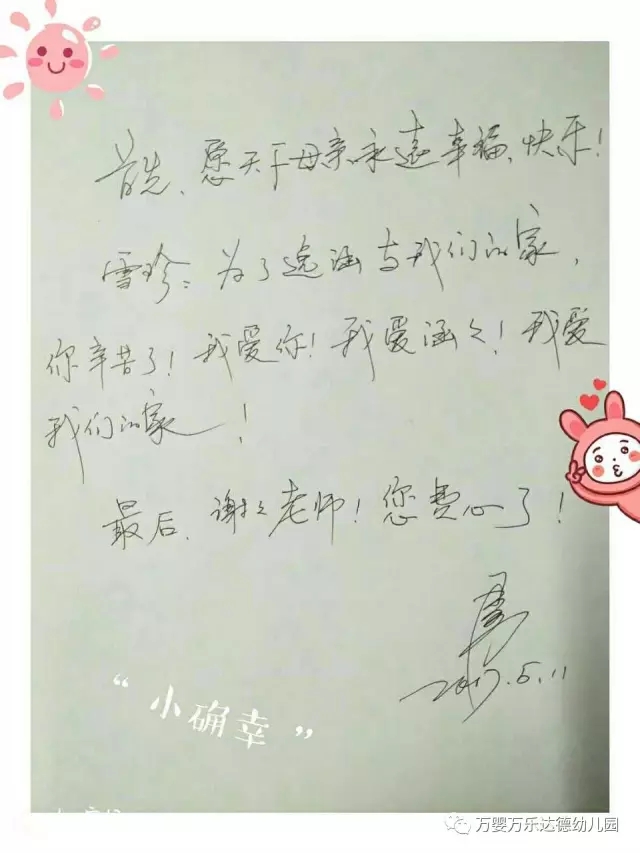 首先、愿天下母亲永远幸福、快乐！
雪珍：为了逸涵与我们的家，
你辛苦了！我爱你！我爱涵々！我爱
我们的家！
最后，谢々老师！您费心了！
2017.5.11
“小确幸”
万婴万乐达德幼儿园